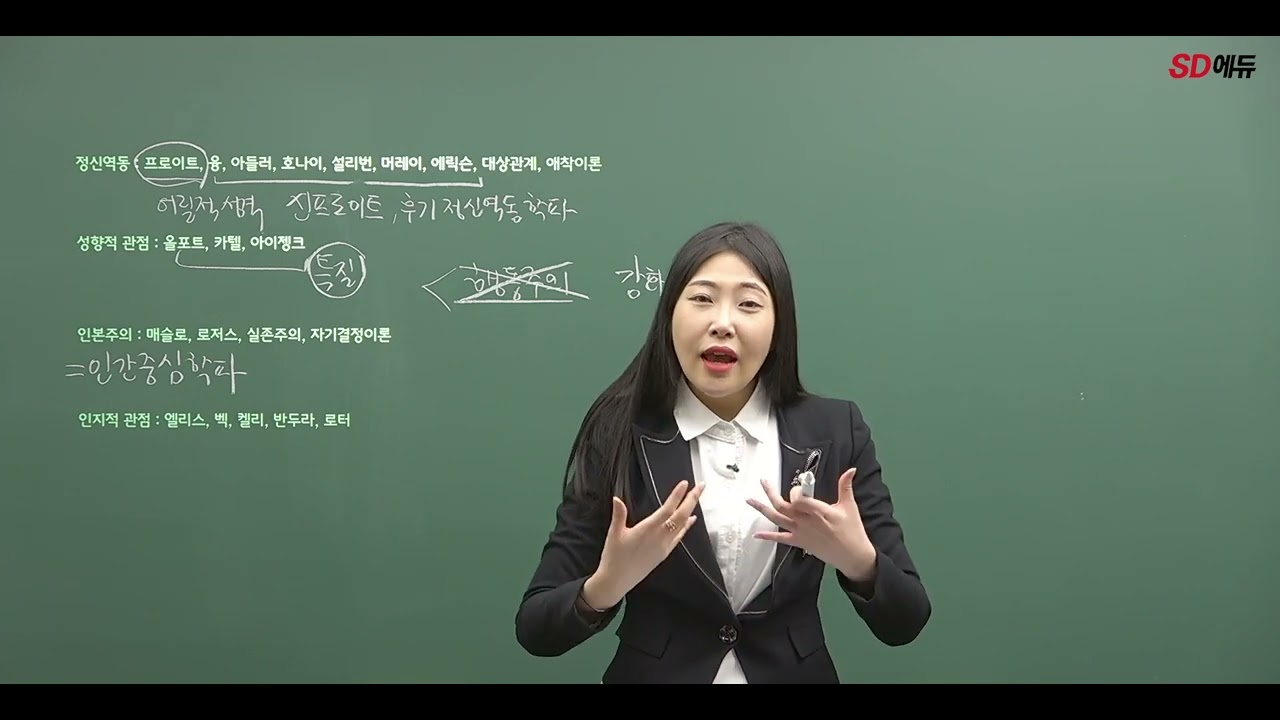 SD에듀
정신역동 : 프로이트, 융, 아들러, 호나이, 설리번, 머레이, 에릭슨, 대상관계, 애착이론
어릴적 성욕 신프로이트, 후기 정신역동학파
성향적 관점 : 올포트, 카텔, 아이젱크
특질
행동주의 강화
인본주의 : 매슬로, 로저스, 실존주의, 자기결정이론
=인간중심학파
인지적 관점 : 엘리스, 벡, 켈리, 반두라, 로터